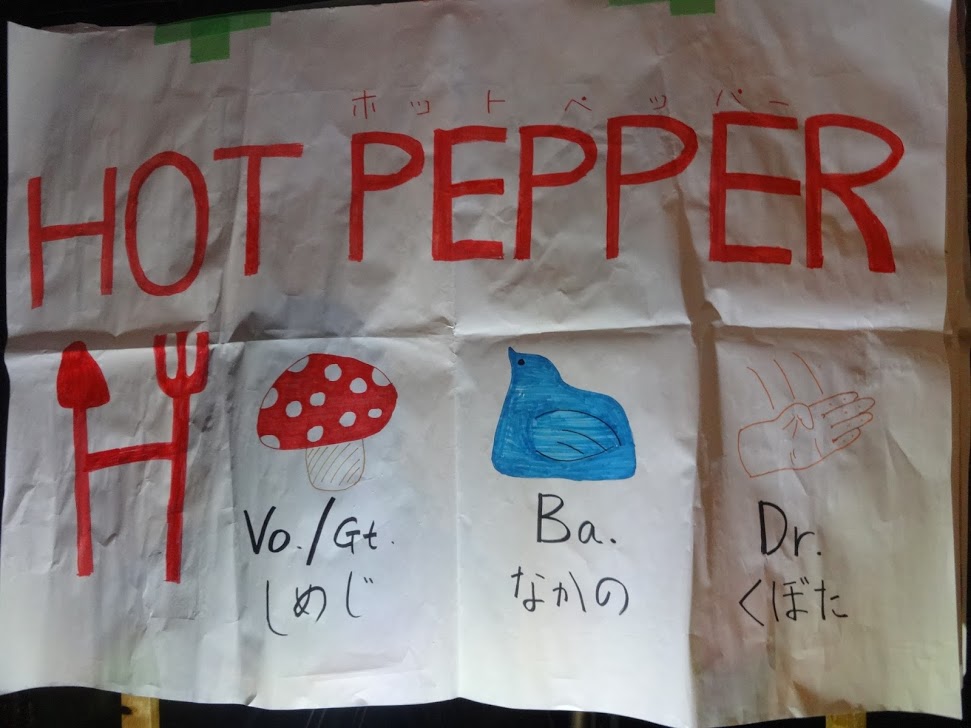 ホットペッパー
HOT PEPPER
Vo./Gt.
しめじ
Ba.
なかの
Dr.
くぼた